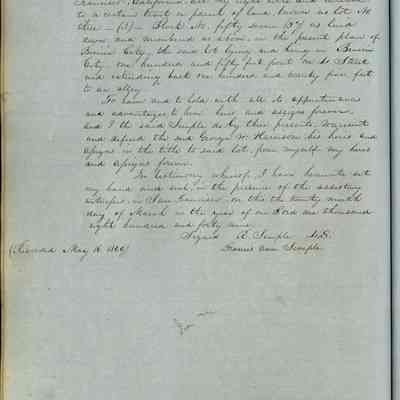 Francisco California all my right title and interest
to a certain tract or parcel of land, known as lot No
three — (3) — Block No. fifty seven (57) as laid
down and numbered as above, in the present plan of
Benicia City, the said lot lying and being in Benicia
City, one hundred and fifty feet front on st. Street
and extending back one hundred and twenty five feet
to an alley
To have and to hold with all its appurtenances
and advantages to him heirs and assigns forever,
and I the said Semple do by these presents, warrant
and defend the said George W. Harrison his heirs and
assigns in the title to said lot, from myself my heirs
and assigns forever.
In testimony whereof, I have hereunto set
my hand and seal, in the presence of the assisting
witnesses, in San Francisco, on this the twenty ninth
day of March in the year of our Lord one thousand
eight hundred and forty nine.
Signed R. Semple L.S.
(Recorded May 16, 1849) Frances Ann Semple